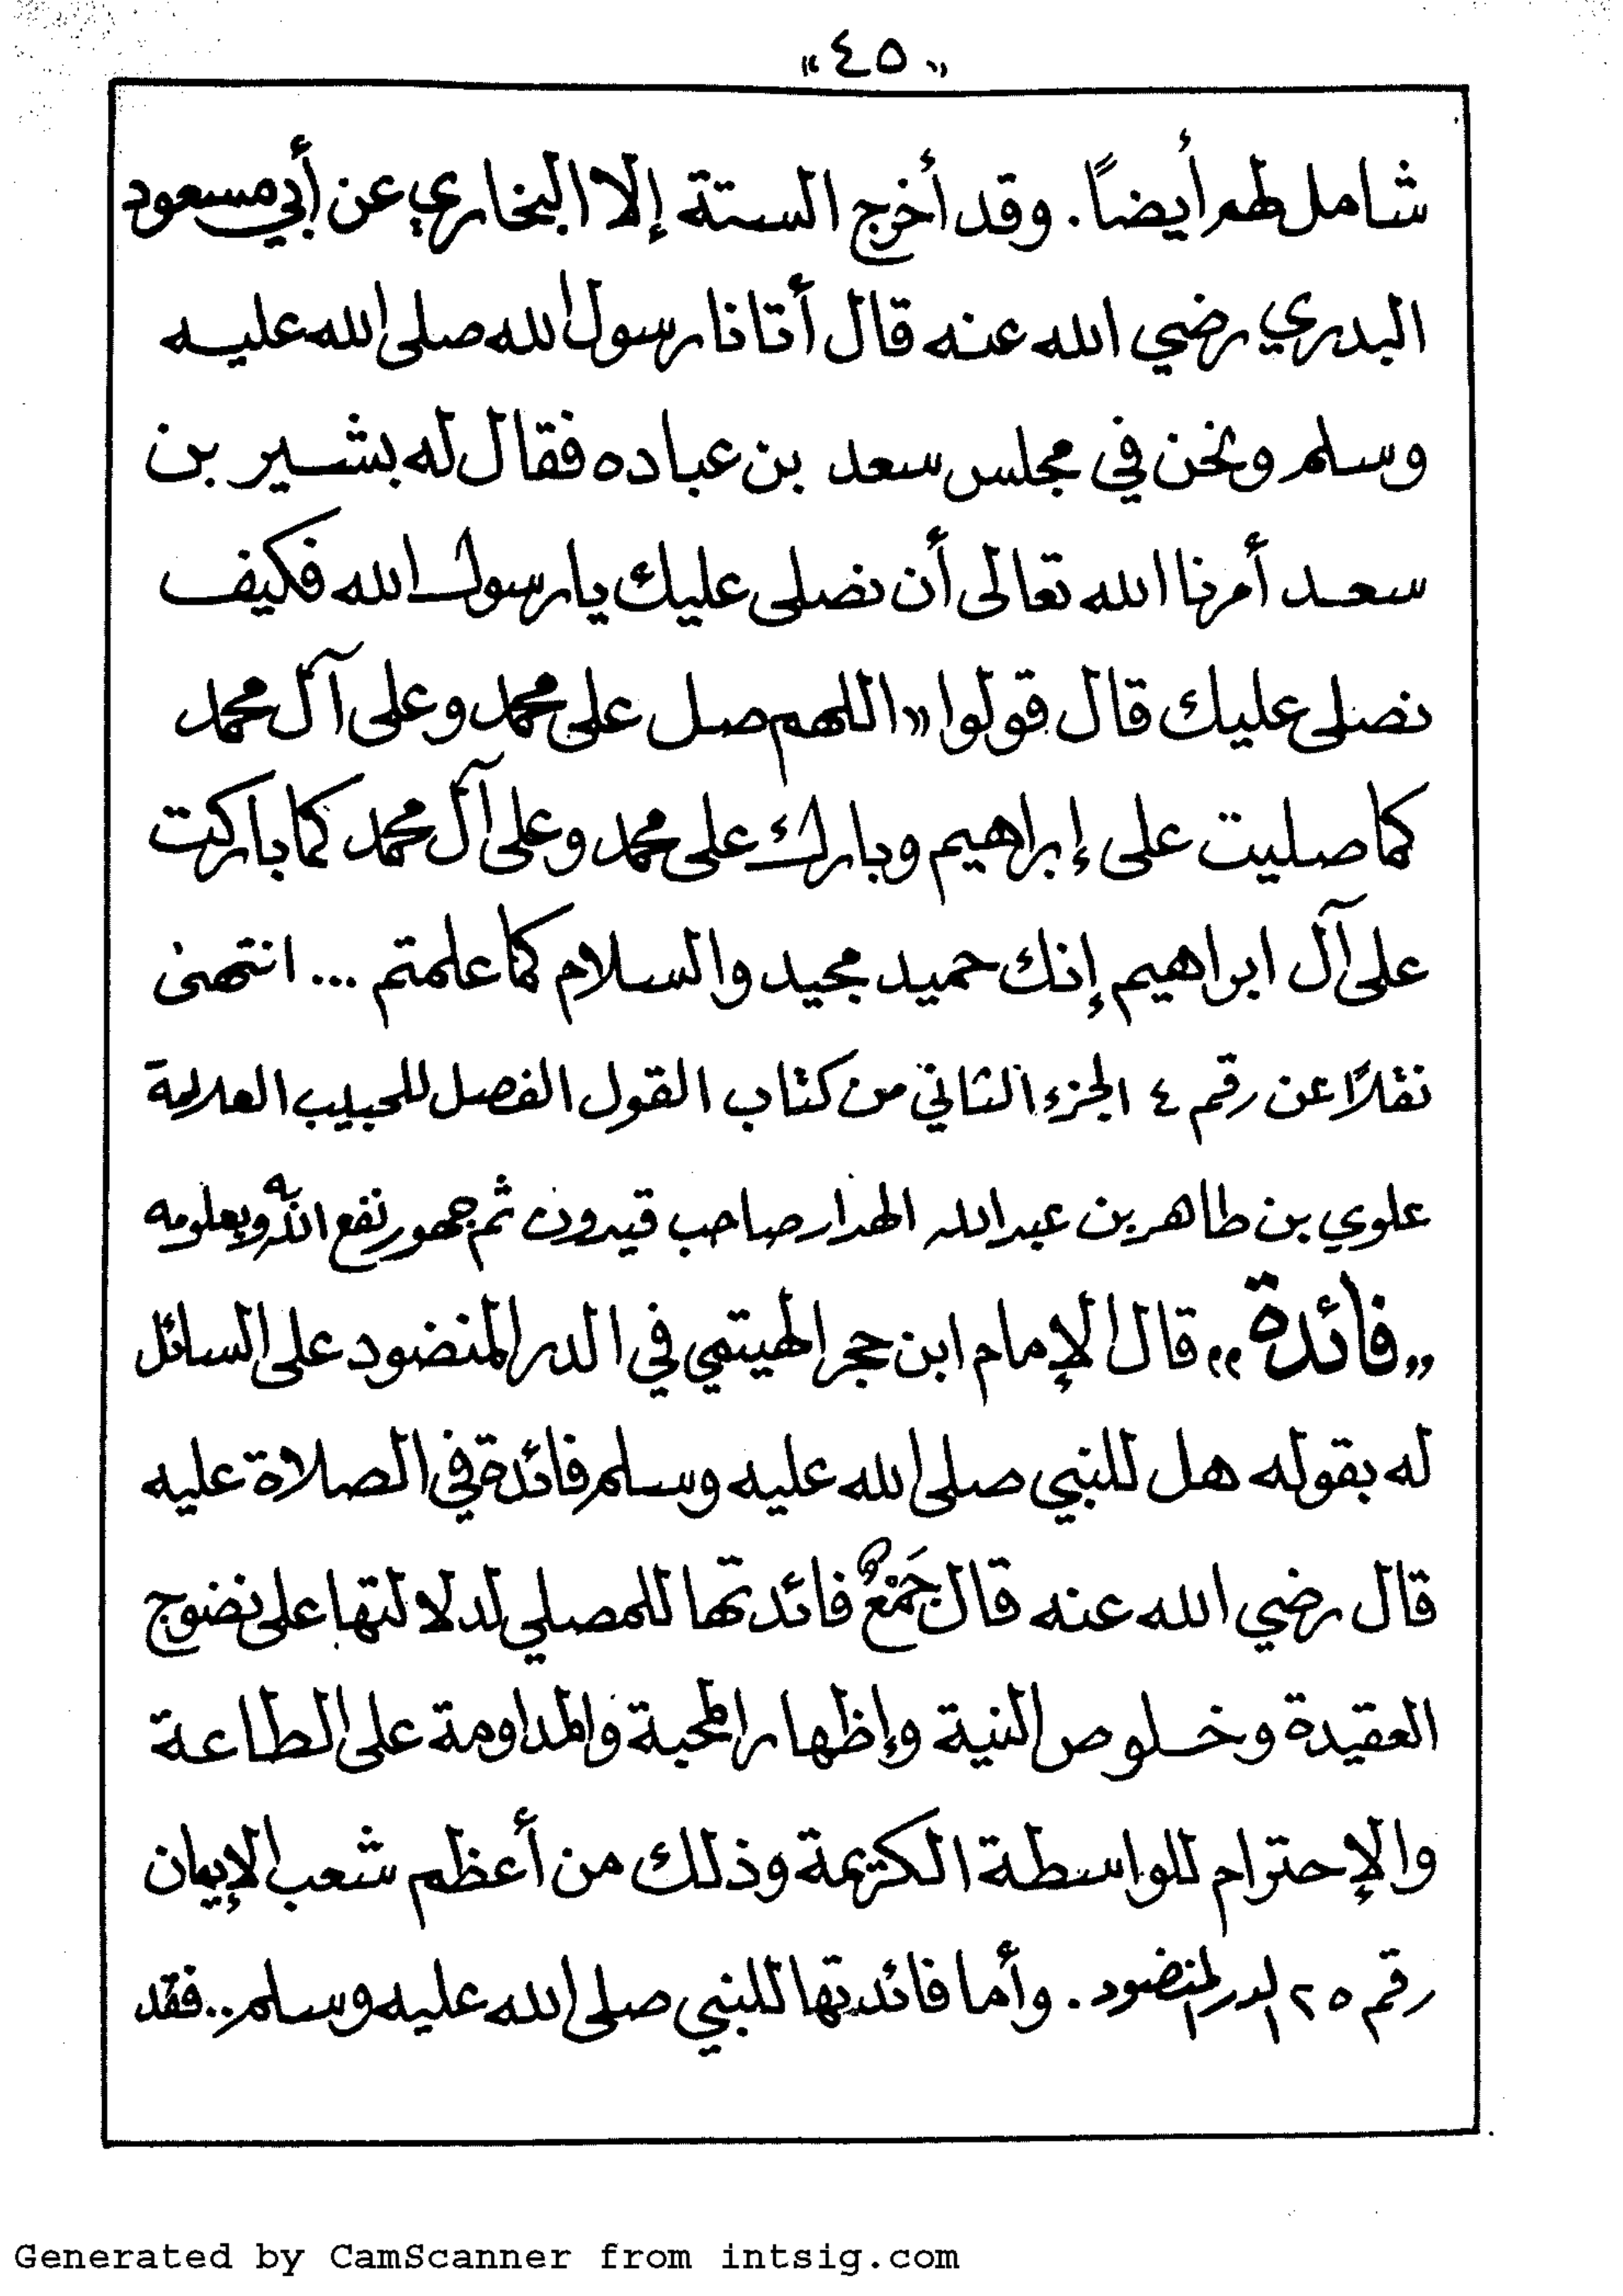 «٤٥»
شامل لهم أيضاً. وقد أخرج الستة إلا البخاري عن أبي مسعود
البدري رضي الله عنه قال أتانا رسول الله صلى الله عليه
وسلم ونحن في مجلس سعد بن عباده فقال له بشير بن
سعد أمرنا الله تعالى أن نصلى عليك يا رسول الله فكيف
نصلى عليك قال قولوا «اللهم صل على محمد وعلى آل محمد
كما صليت على إبراهيم وبارك على محمد وعلى آل محمد كما باركت
على آل ابراهيم إنك حميد مجيد والسلام كما علمتم ... انتهى
نقلاً عن رقم ٤ الجزء الثاني من كتاب القول الفصل للحبيب العلامة
علوي بن طاهر بن عبدالله الهدار صاحب قيدون ثم جهور نفع الله به وبعلومه
„فائدة" قال الإمام ابن حجر الهيتمي في الدر المنضود على السائل
له بقوله هل للنبي صلى الله عليه وسلم فائدة في الصلاة عليه
قال رضي الله عنه قال جَمْعٌ فائدتها للمصلي لدلالتها على نضوج
العقيدة وخلوص النية وإظهار المحبة والمداومة على الطاعة
والإحترام للواسطة الكريمة وذلك من أعظم شعب الإيمان
رقم ٢٥ الدر المنضود. وأما فائدتها للنبي صلى الله عليه وسلم.. فقد
Generated by CamScanner from intsig.com